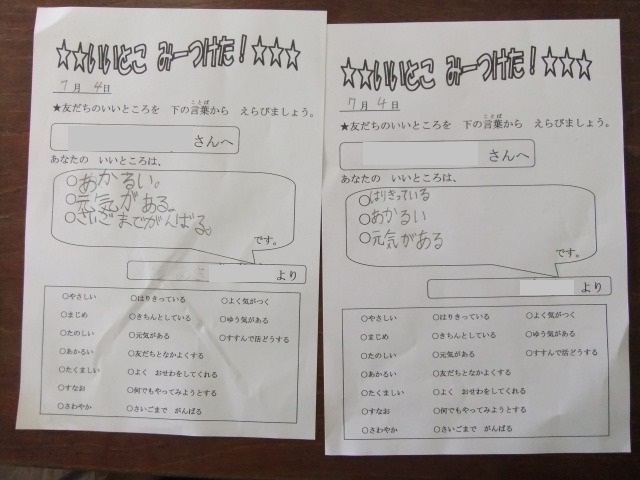 ☆☆いいとこ みーつけた！☆☆☆
7月 4日
★友だちのいいところを 下の言葉から えらびましょう。
ことば
さんへ
あなたの いいところは、
○あかるい。
○元気がある。
○さいごまでがんばる。
です。
より
○やさしい ○はりきっている ○よく気がつく
○まじめ ○きちんとしている ○ゆう気がある
○たのしい ○元気がある ○すすんで活どうする
○あかるい ○友だちとなかよくする
○たくましい ○よく おせわをしてくれる
○すなお ○何でもやってみようとする
○さわやか ○さいごまで がんばる
★★いいとこ みーつけた！☆☆☆
7月 4日
★友だちのいいところを 下の言葉から えらびましょう。
ことば
さんへ
あなたの いいところは、
○はりきっている
○あかるい
○元気がある
です。
より
○やさしい ○はりきっている ○よく気がつく
○まじめ ○きちんとしている ○ゆう気がある
○たのしい ○元気がある ○すすんで活どうする
○あかるい ○友だちとなかよくする
○たくましい ○よく おせわをしてくれる
○すなお ○何でもやってみようとする
○さわやか ○さいごまで がんばる